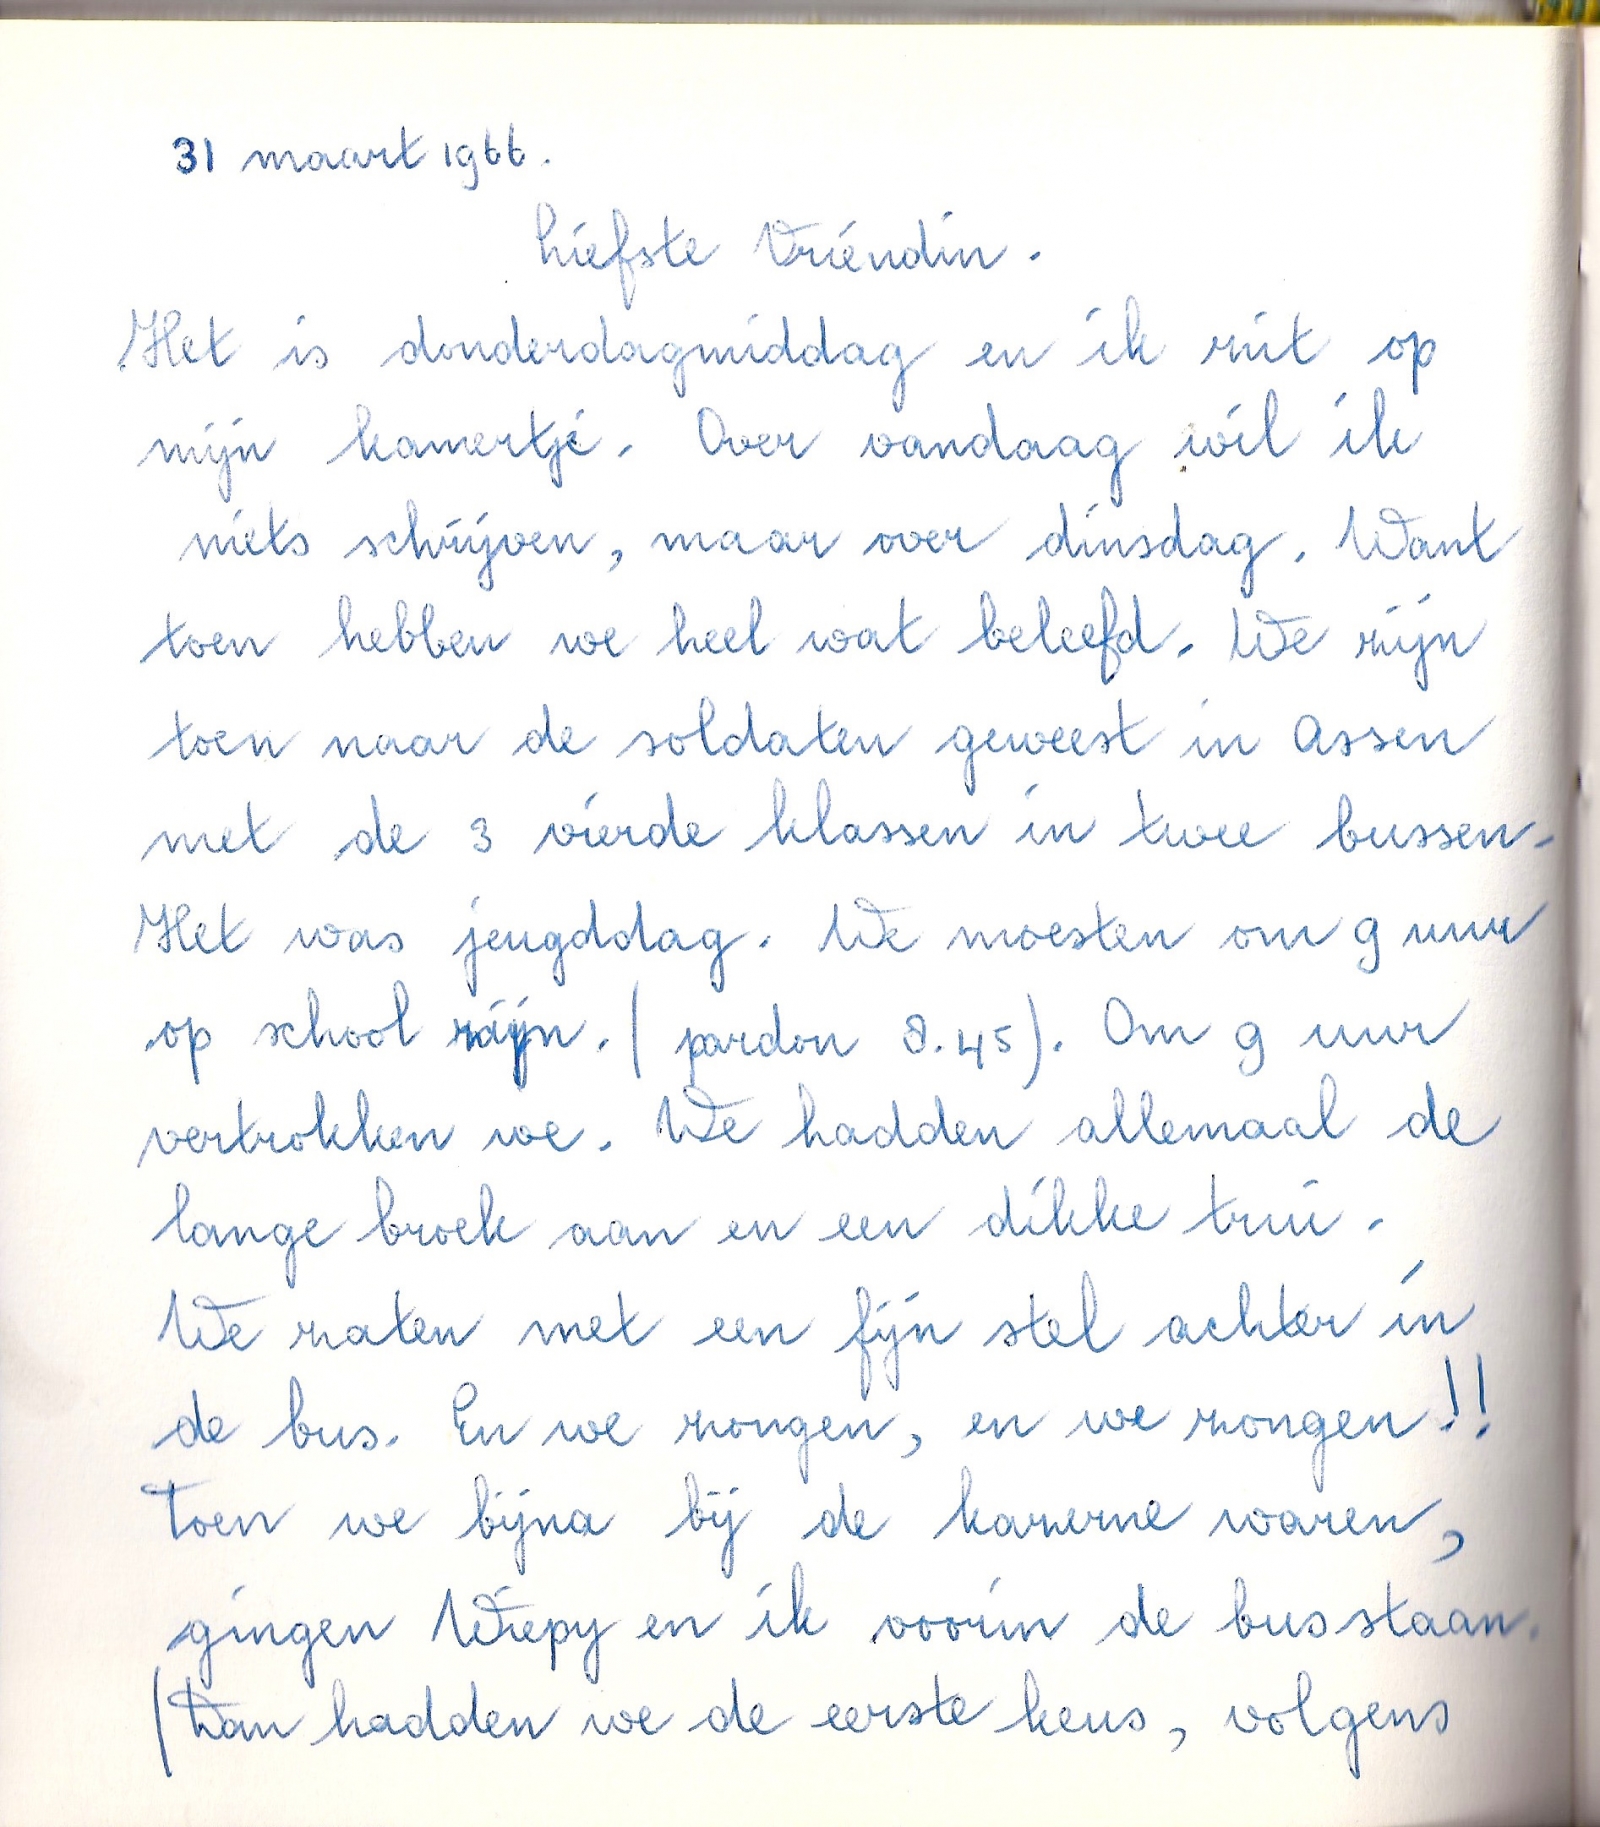 31 maart 1966.
Liefste Vriendin.
Het is donderdagmiddag en ik zit op
mijn kamertje. Over vandaag wil ik
niets schrijven, maar over dinsdag. Want
toen hebben we heel wat beleefd. We zijn
toen naar de soldaten geweest in Assen
met de 3 vierde klassen in twee bussen.
Het was jeugddag. We moesten om 9 uur
op school zijn. (pardon 8.45). Om 9 uur
vertrokken we. We hadden allemaal de
lange broek aan en een dikke trui.
We zaten met een fijn stel achter in
de bus. En we zongen, en we zongen!!
Toen we bijna bij de kazerne waren,
gingen Wiepy en ik voorin de bus staan.
(Dan hadden we de eerste keus, volgens